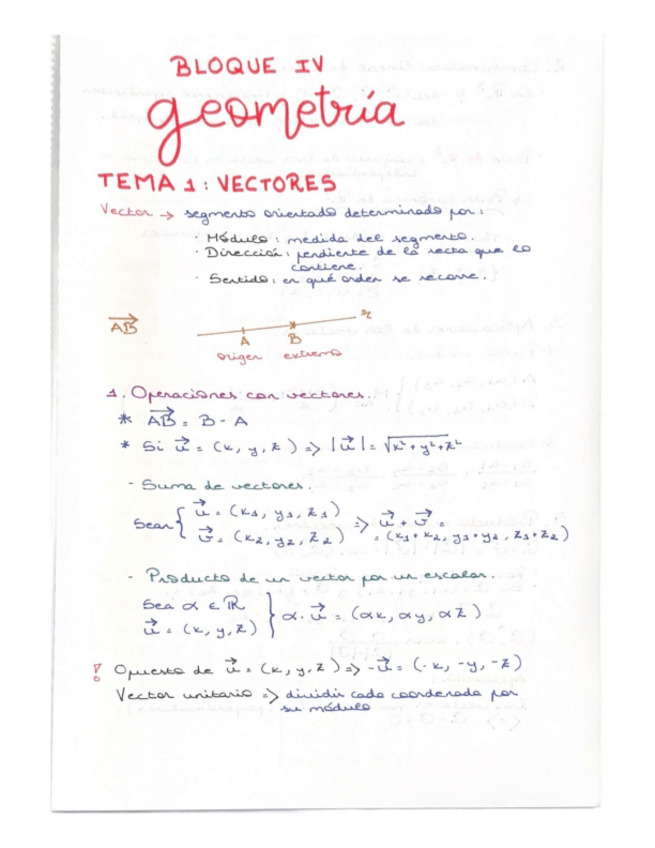 BLOQUE IV
geometría
TEMA 1: VECTORES
Vector → segmento orientado determinado por:
· Módulo: medida del segmento.
· Dirección: pendiente de la recta que lo
contiene.
· Sentido: en qué orden se recorre.
AB→
A B r
origen extremo
1. Operaciones con vectores.
* AB→ = B - A
* Si u→ = (x, y, z) => |u→| = √x² + y² + z²
- Suma de vectores.
Sean { u→ = (x1, y1, z1)
v→ = (x2, y2, z2) => u→ + v→ =
= (x1 + x2, y1 + y2, z1 + z2)
- Producto de un vector por un escalar.
Sea α ∈ ℝ
u→ = (x, y, z) } α · u→ = (αx, αy, αz)
Opuesto de u→ = (x, y, z) => -u→ = (-x, -y, -z)
Vector unitario => dividir cada coordenada por
su módulo